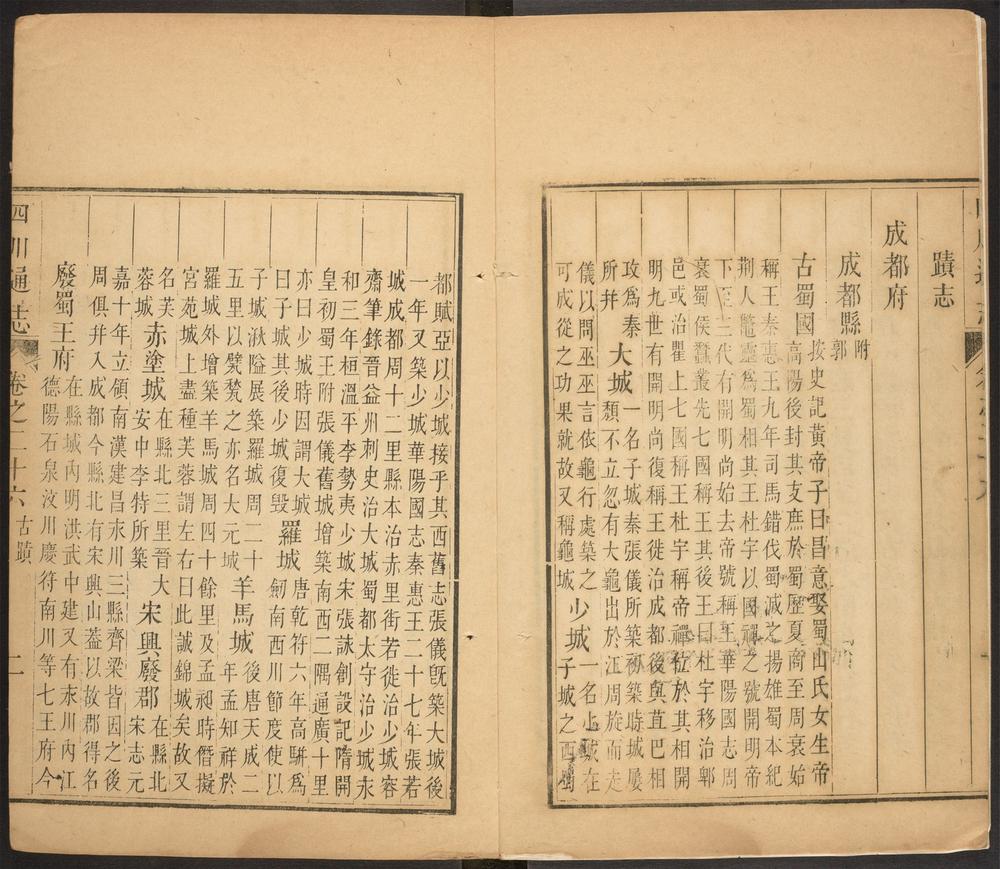 蹟志
成都府
成都縣 附郭
古蜀國 按史記黃帝子曰昌意娶蜀山氏女生帝
高陽後封其支庶於蜀歷夏商至周衰始
稱王秦惠王九年司馬錯伐蜀滅之揚雄蜀本紀
荆人鼈靈爲蜀相其王杜宇以國禪之號開明帝
下至五代有開明尚始去帝號稱王華陽國志周
衰蜀侯蠶叢先七國稱王其後王曰杜宇移治郫
邑或治瞿上七國稱王杜宇稱帝禪位於其相開
明九世有開明尚復稱王徙治成都後與苴巴相
攻爲秦
所并 大城 一名子城秦張儀所築初築時城屢
頹不立忽有大龜出於江周旋而走
儀以問巫巫言依龜行處築之
可成從之功果就故又稱龜城 少城 一名小城在
子城之西蜀
都賦亞以少城接乎其西舊志張儀旣築大城後
一年又築少城華陽國志秦惠王二十七年張若
城成都周十二里縣本治赤里街若徙治少城容
齋筆錄晉益州刺史治大城蜀郡太守治少城永
和三年桓溫平李勢夷少城宋張詠創設記隋開
皇初蜀王附張儀舊城增築南西二隅通廣十里
亦曰少城時因謂大城
曰子城其後少城復毀 羅城 唐乾符六年高駢爲
劒南西川節度使以
子城湫隘展築羅城周二十
五里以甓甃之亦名大元城 羊馬城 後唐天成二
年孟知祥於
羅城外增築羊馬城周四十餘里及孟昶時僭擬
宮苑城上盡種芙蓉謂左右曰此誠錦城矣故又
名芙
蓉城 赤塗城 在縣北三里晉大
安中李特所築 宋興廢郡 在縣北
宋志元
嘉十年立領南漢建昌永川三縣齊梁皆因之後
周俱并入成都今縣北有宋興山葢以故郡得名
廢蜀王府 在縣城內明洪武中建又有永川內江
德陽石泉汶川慶符南川等七王府今
四川通志 卷之二十六 古蹟 二